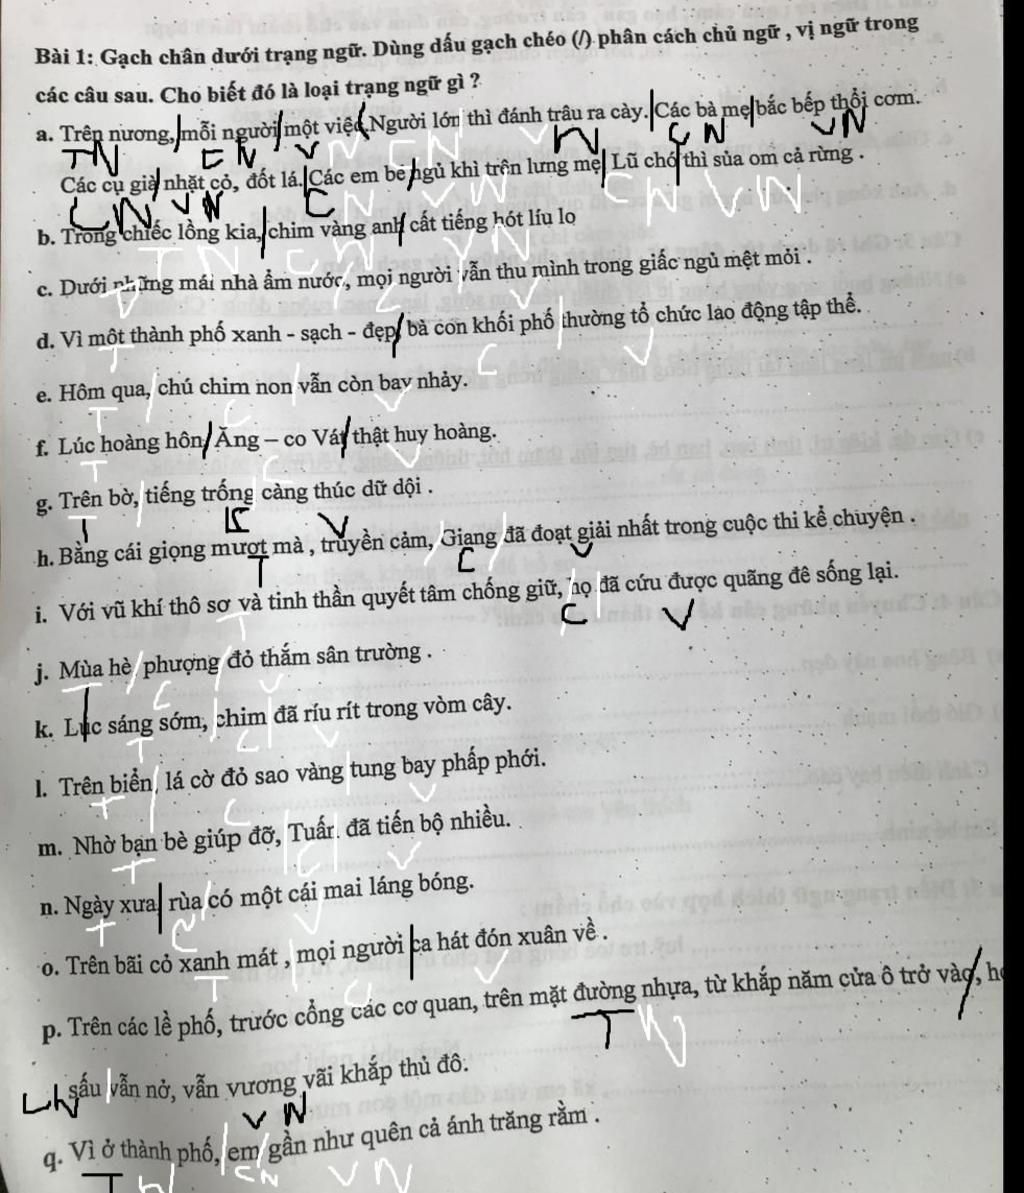 Bài 1: Gạch chân dưới trạng ngữ. Dùng dấu gạch chéo (/) phân cách chủ ngữ , vị ngữ trong
các câu sau. Cho biết đó là loại trạng ngữ gì ?
a. Trên nương, mỗi người một việc. Người lớn thì đánh trâu ra cày. Các bà mẹ bắc bếp thổi cơm.
TN CN V N CN V N C N VN
Các cụ già nhặt cỏ, đốt lá. Các em bé ngủ khì trên lưng mẹ. Lũ chó thì sủa om cả rừng .
CN VN C N VN CN VN
b. Trong chiếc lồng kia, chim vàng anh cất tiếng hót líu lo
TN CN VN
c. Dưới những mái nhà ẩm nước, mọi người vẫn thu mình trong giấc ngủ mệt mỏi .
d. Vì một thành phố xanh - sạch - đẹp, bà con khối phố thường tổ chức lao động tập thể.
T C V
e. Hôm qua, chú chim non vẫn còn bay nhảy.
T C V
f. Lúc hoàng hôn, Ăng – co Vát thật huy hoàng.
T C V
g. Trên bờ, tiếng trống càng thúc dữ dội .
T C V
h. Bằng cái giọng mượt mà , truyền cảm, Giang đã đoạt giải nhất trong cuộc thi kể chuyện .
T C V
i. Với vũ khí thô sơ và tinh thần quyết tâm chống giữ, họ đã cứu được quãng đê sống lại.
T C V
j. Mùa hè, phượng đỏ thắm sân trường .
T C V
k. Lúc sáng sớm, chim đã ríu rít trong vòm cây.
T C V
l. Trên biển, lá cờ đỏ sao vàng tung bay phấp phới.
T C V
m. Nhờ bạn bè giúp đỡ, Tuấn đã tiến bộ nhiều.
T C V
n. Ngày xưa, rùa có một cái mai láng bóng.
T C V
o. Trên bãi cỏ xanh mát , mọi người ca hát đón xuân về .
T C V
p. Trên các lề phố, trước cổng các cơ quan, trên mặt đường nhựa, từ khắp năm cửa ô trở vào, h
TN
sấu vẫn nở, vẫn vương vãi khắp thủ đô.
CN VN
q. Vì ở thành phố, em gần như quên cả ánh trăng rằm .
TN CN VN